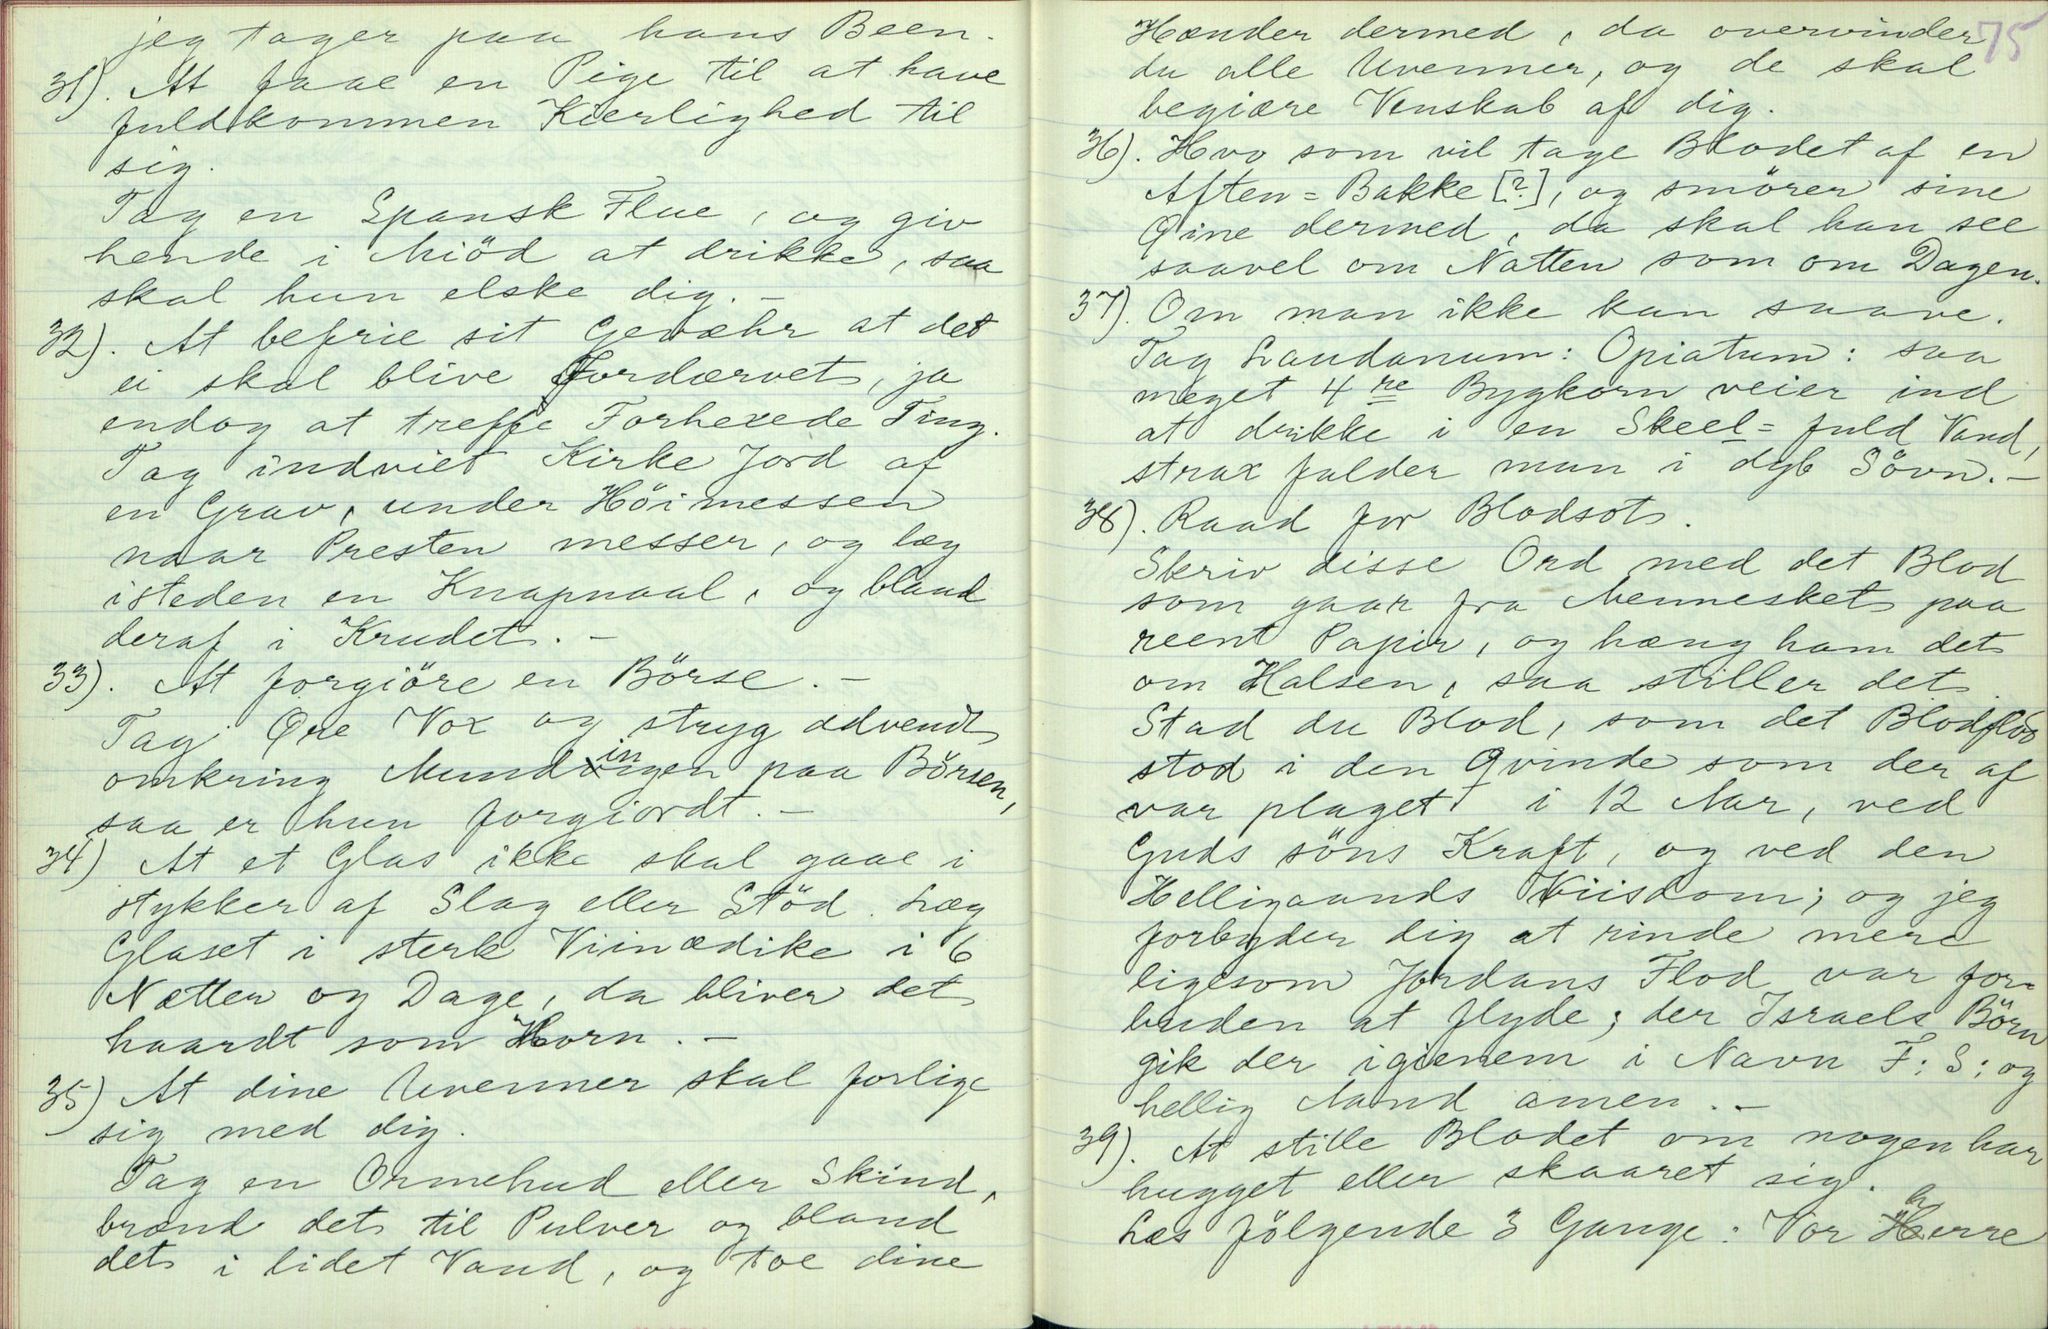 jeg tager paa hans Been.
31). At faae en Pige til at have
fuldkommen Kierlighed til
sig.
Tag en Spansk Flue, og giv
hende i Miöd at drikke, saa
skal hun elske dig. –
32). At befrie sit Gevæhr at det
ei skal blive Fordærvet, ja
endog at treffe Forhexede Ting.
Tag indviet Kirke Jord af
en Grav, under Höimessen
naar Presten messer, og læg
isteden en Knapnaal, og bland
deraf i Krudet. –
33). At forgiöre en Börse. –
Tag Øre Vox og stryg advendt
omkring Mundingen paa Börsen,
saa er hun forgiordt. –
34) At et Glas ikke skal gaae i
stykker af Slag eller Stöd. Læg
Glaset i sterk Viinædike i 6
Nætter og Dage, da bliver det
haardt som Horn. –
35) At dine Uvenner skal forlige
sig med dig.
Tag en Ormehud eller Skind,
brænd det til Pulver og bland
det i lidet Vand, og toe dine
75
Hænder dermed, da overvinder
du alle Uvenner, og de skal
begiære Venskab af dig.
36). Hvo som vil tage Blodet af en
Aften=Bakke [?], og smörer sine
Øine dermed, da skal han see
saavel om Natten som om Dagen.
37). Om man ikke kan saave.
Tag Laudanum: Opiatum: saa
meget 4re Bygkorn veier ind
at drikke i en Skeel= fuld Vand,
strax falder man i dyb Sövn. –
38). Raad for Blodsot.
Skriv disse Ord med det Blod
som gaar fra Mennesket paa
reent Papir, og hæng ham det
om Halsen, saa stiller det.
Stad du Blod, som det Blodflod
stod i den Qvinde som der af
var plaget i 12 Aar, ved
Guds söns Kraft, og ved den
Helligaands Viisdom; og jeg
forbyder dig at rinde mere
ligesom Jordans Flod var for=
buden at flyde; der Israels Börn
gik der igienem i Navn F: S: og
hellig Aand amen. –
39). At stille Blodet om nogen har
hugget eller skaaret sig.
Læs fölgende 3 Gange: Vor Herre